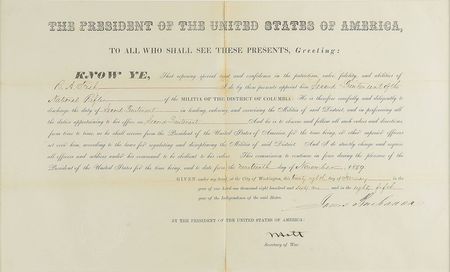 THE PRESIDENT OF THE UNITED STATES OF AMERICA,
TO ALL WHO SHALL SEE THESE PRESENTS, Greeting:
KNOW YE, That reposing special trust and confidence in the patriotism, valor, fidelity, and abilities of
I do by these presents appoint him Second Lieutenant of the
National Rifles of the MILITIA OF THE DISTRICT OF COLUMBIA: He is therefore carefully and diligently to
discharge the duty of Second Lieutenant in leading, ordering and exercising the Militia of said District, and in performing all
the duties appertaining to his office as Second Lieutenant And he is to observe and follow all such orders and directions
from time to time, as he shall receive from the President of the United States of America for the time being, or other superior officers
set over him, according to the laws for regulating and disciplining the Militia of said District. And I do strictly charge and require
all officers and soldiers under his command to be obedient to his orders. This commission to continue in force during the pleasure of the
President of the United States for the time being, and to date from the nineteenth day of November 1859
GIVEN under my hand, at the City of Washington, this twenty eighth day of January in the
year of our Lord one thousand eight hundred and sixty one and in the eighty fifth
year of the Independence of the said States.
James Buchanan
BY THE PRESIDENT OF THE UNITED STATES OF AMERICA:
Secretary of War